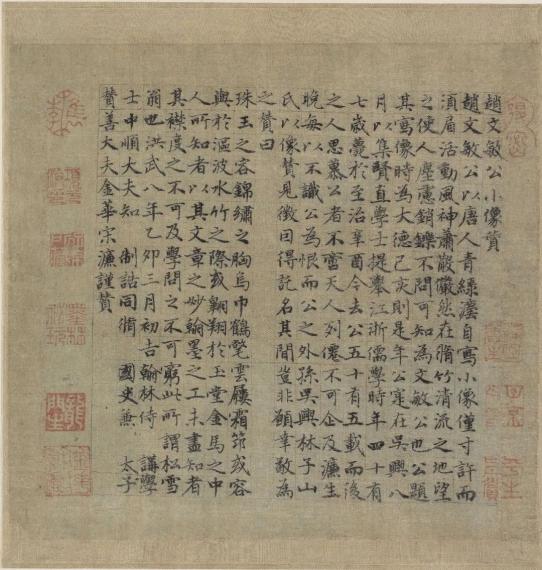 趙文敏公小像贊
趙文敏公以唐人青綠灋自寫小像僅寸許而
須眉活動風神蕭散儼然在脩竹清流之地望
之使人塵慮銷鑠不問可知為文敏公也公題
其寫像時為大德己亥則是年公寔在吳興八
月以集賢直學士提舉江浙儒學時年四十有
七歲薨於至治辛酉今去公五十有五載而後
之人思慕公者不啻天人列僊不可企及濂生
晚每以不識公為恨而公之外孫吳興林子山
氏以像贊見徵因得託名其間豈非願幸敬為
之贊曰
珠玉之容錦繡之胸烏巾鶴氅雲屨霜筇或容
與於漚波水竹之際或翱翔於玉堂金馬之中
人所知者以其文章之妙翰墨之工未盡知者
其襟度之不可及學問之不可窮此所謂松雪
翁也洪武八年乙卯三月初吉翰林侍 講學
士中順大夫知 制誥同脩 國史兼 太子
贊善大夫金華宋濂謹贊